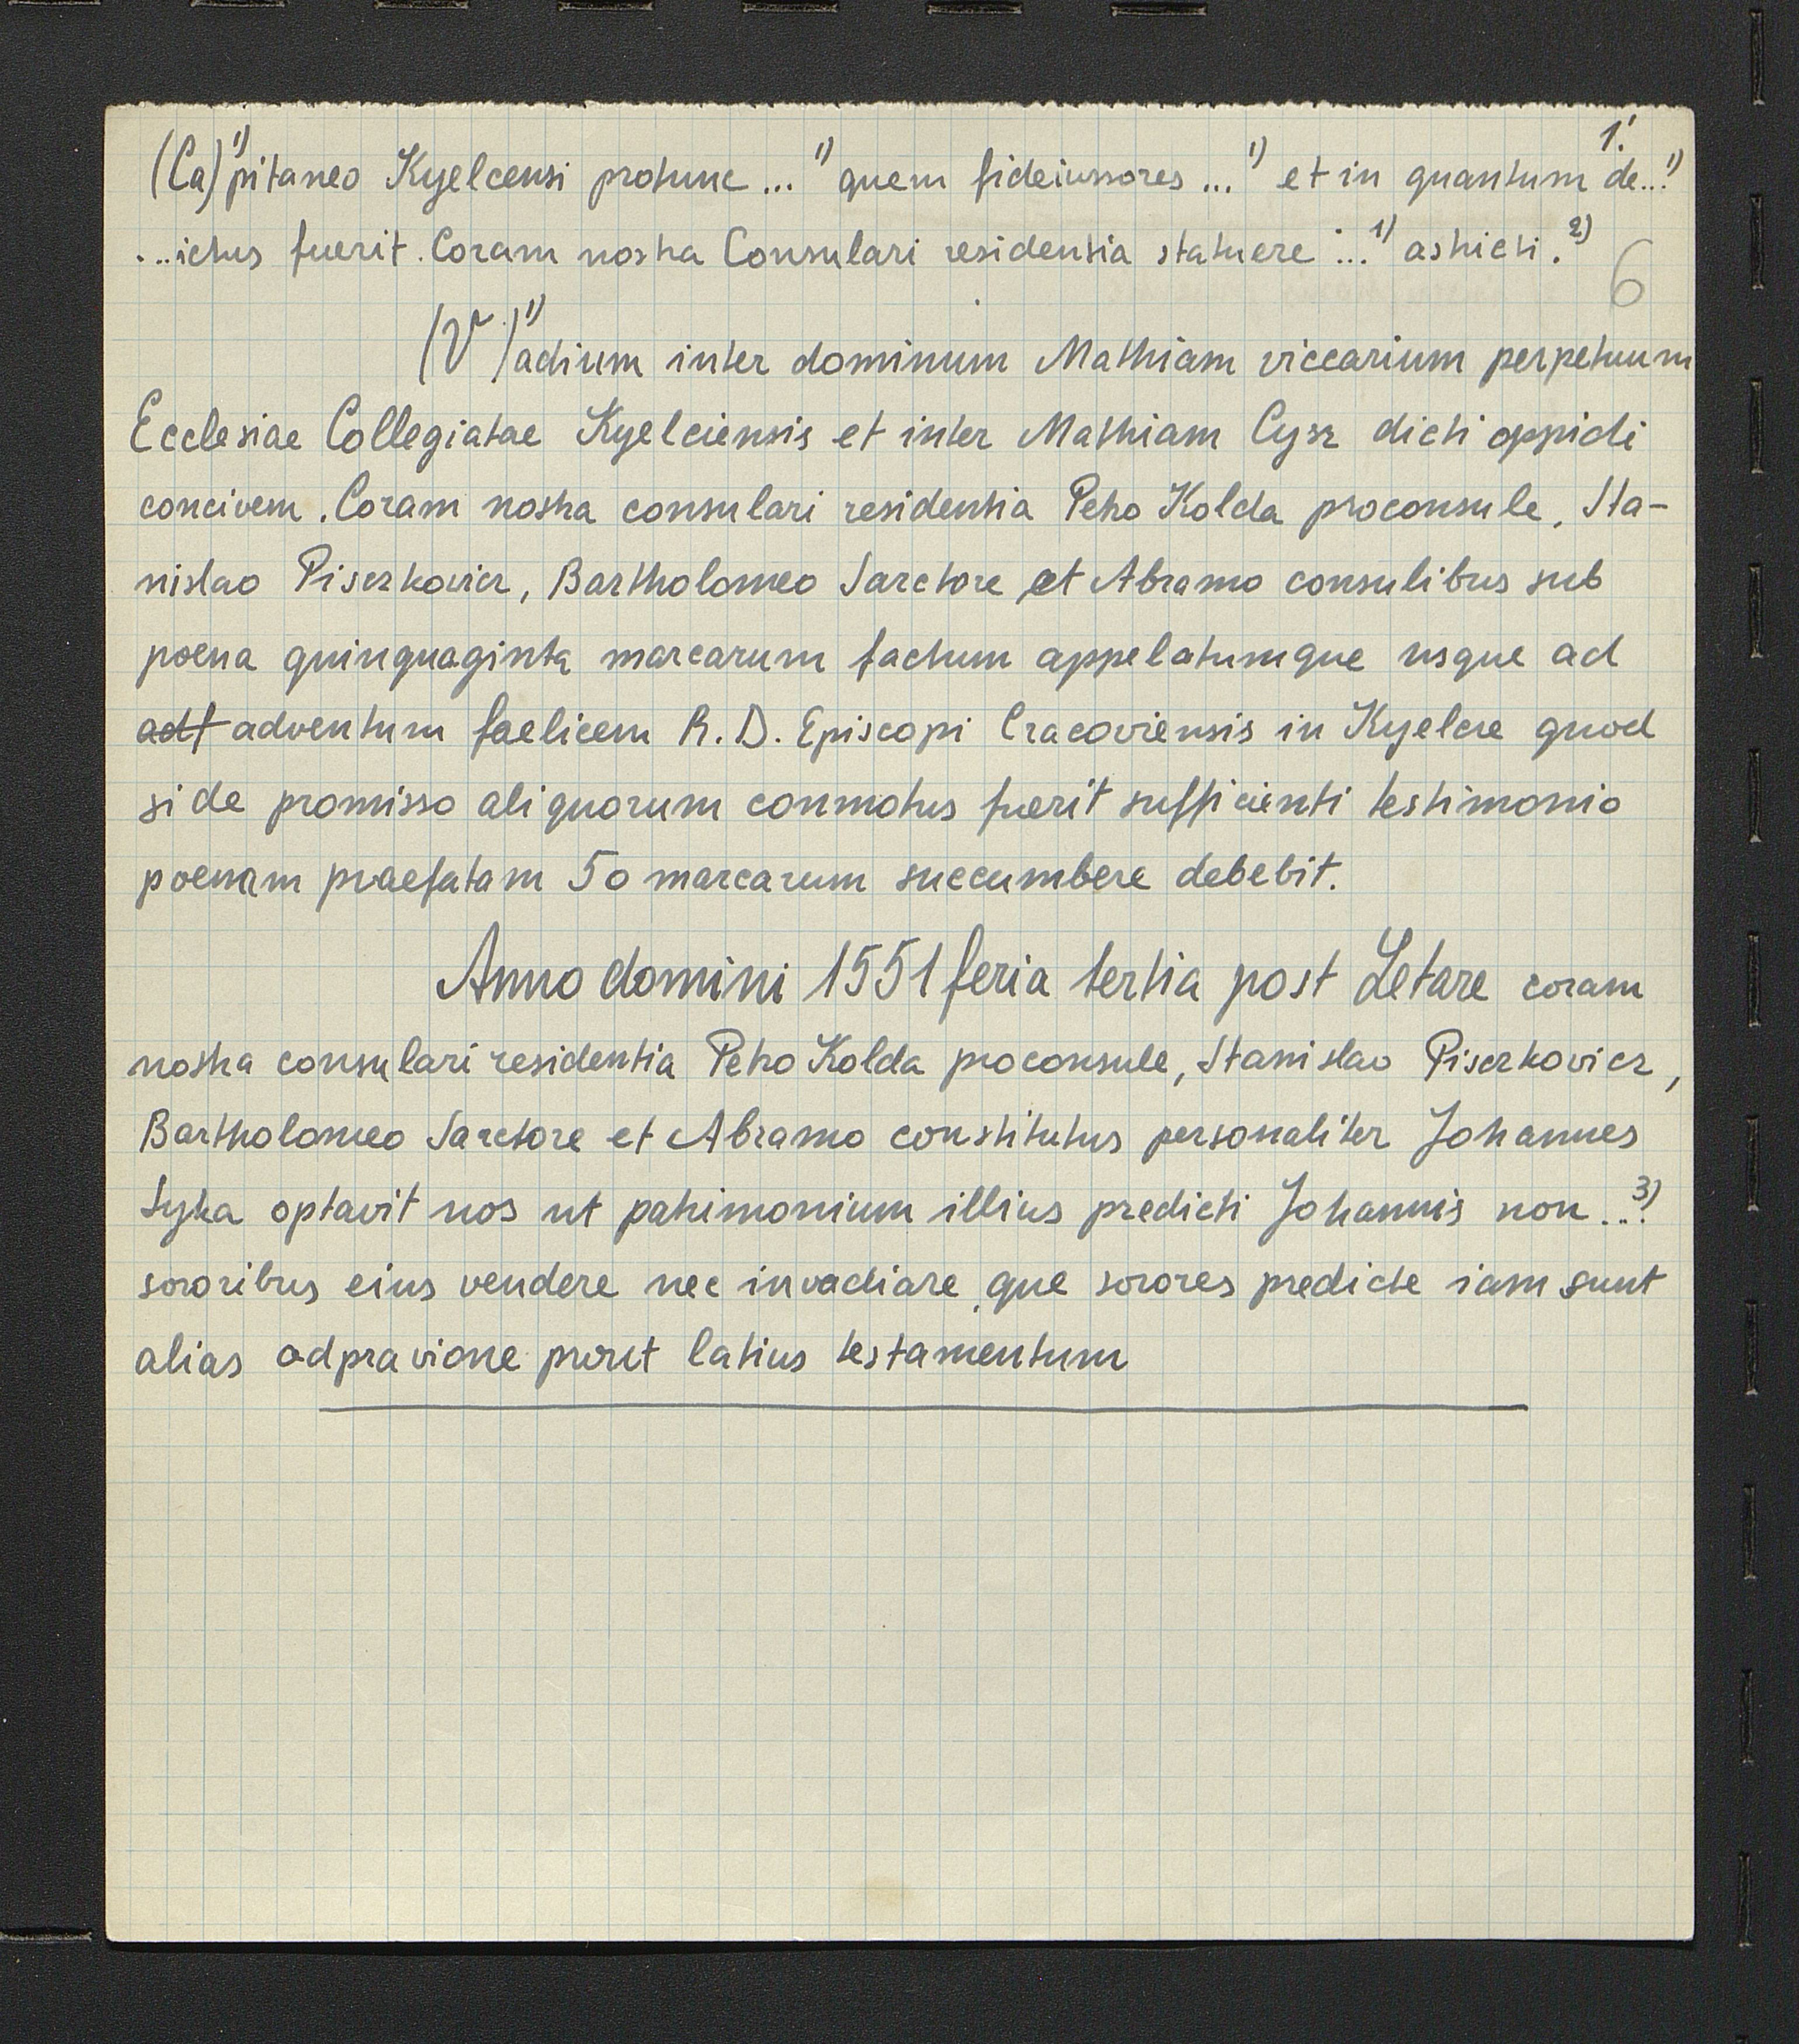 1.
(Ca)¹⁾pitaneo Kyelcensi protunc ...¹⁾ quem fideiussores ...¹⁾ et in quantum de...¹⁾
...ictus fuerit. Coram nostra Consulari residentia statuere ...¹⁾ astricti.²⁾
6
(V)¹⁾adium inter dominum Mathiam viccarium perpetuum
Ecclesiae Collegiatae Kyelciensis et inter Mathiam Cysz dicti oppidi
concivem. Coram nostra consulari residentia Petro Kolda proconsule, Sta-
nislao Piszkovicz, Bartholomeo Sarctore et Abramo consulibus sub
poena quinquaginta marcarum factum appelatumque usque ad
adt adventum faelicem R. D. Episcopi Cracoviensis in Kyelcze quod
si de promisso aliquorum conmotus fuerit sufficienti testimonio
poenam praefatam 50 marcarum succumbere debebit.
Anno domini 1551 feria tertia post Letare coram
nostra consulari residentia Petro Kolda proconsule, Stanislao Piszkovicz,
Bartholomeo Sarctore et Abramo constitutus personaliter Johannes
Syka optavit nos ut patrimonium illius predicti Johannis non...³⁾
sororibus eius vendere nec invadiare, que sorores predicte iam sunt
alias odpravione prout latius testamentum